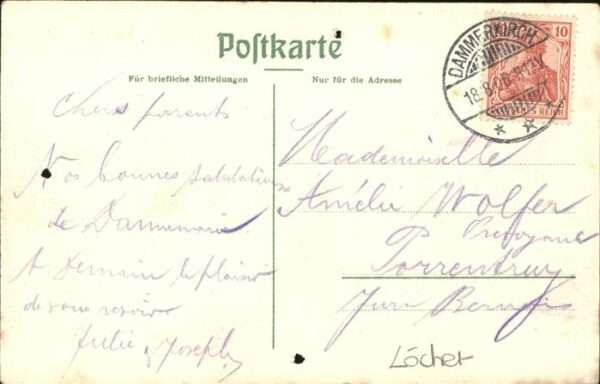 Postkarte
Für briefliche Mitteilungen
Nur für die Adresse
DAMMERKIRCH
18.8.08
10
DEUTSCHES REICH
Chers parents
Nos bonnes salutations
de Dannemarie
A demain le plaisir
de vous revoir
Julie & Joseph
Mademoiselle
Amélie Wolfer
Porrentruy
Jura Bernois
Löcher